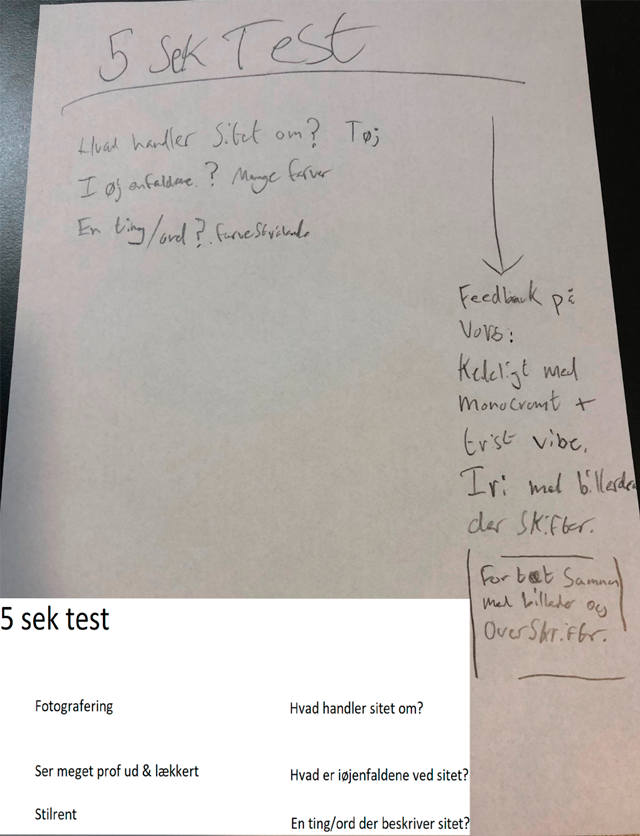 5 sek Test
Hvad handler Sitet om? Tøj
I øjenfaldene? Mange farver
En ting/ord? farvestrålende
Feedback på
Vores:
Kedeligt med
Monocromt +
trist vibe.
Iri med billederne
der Skifter.
For tæt Sammen
med billeder og
OverSkrifter.
5 sek test
Fotografering
Hvad handler sitet om?
Ser meget prof ud & lækkert
Hvad er iøjenfaldene ved sitet?
Stilrent
En ting/ord der beskriver sitet?